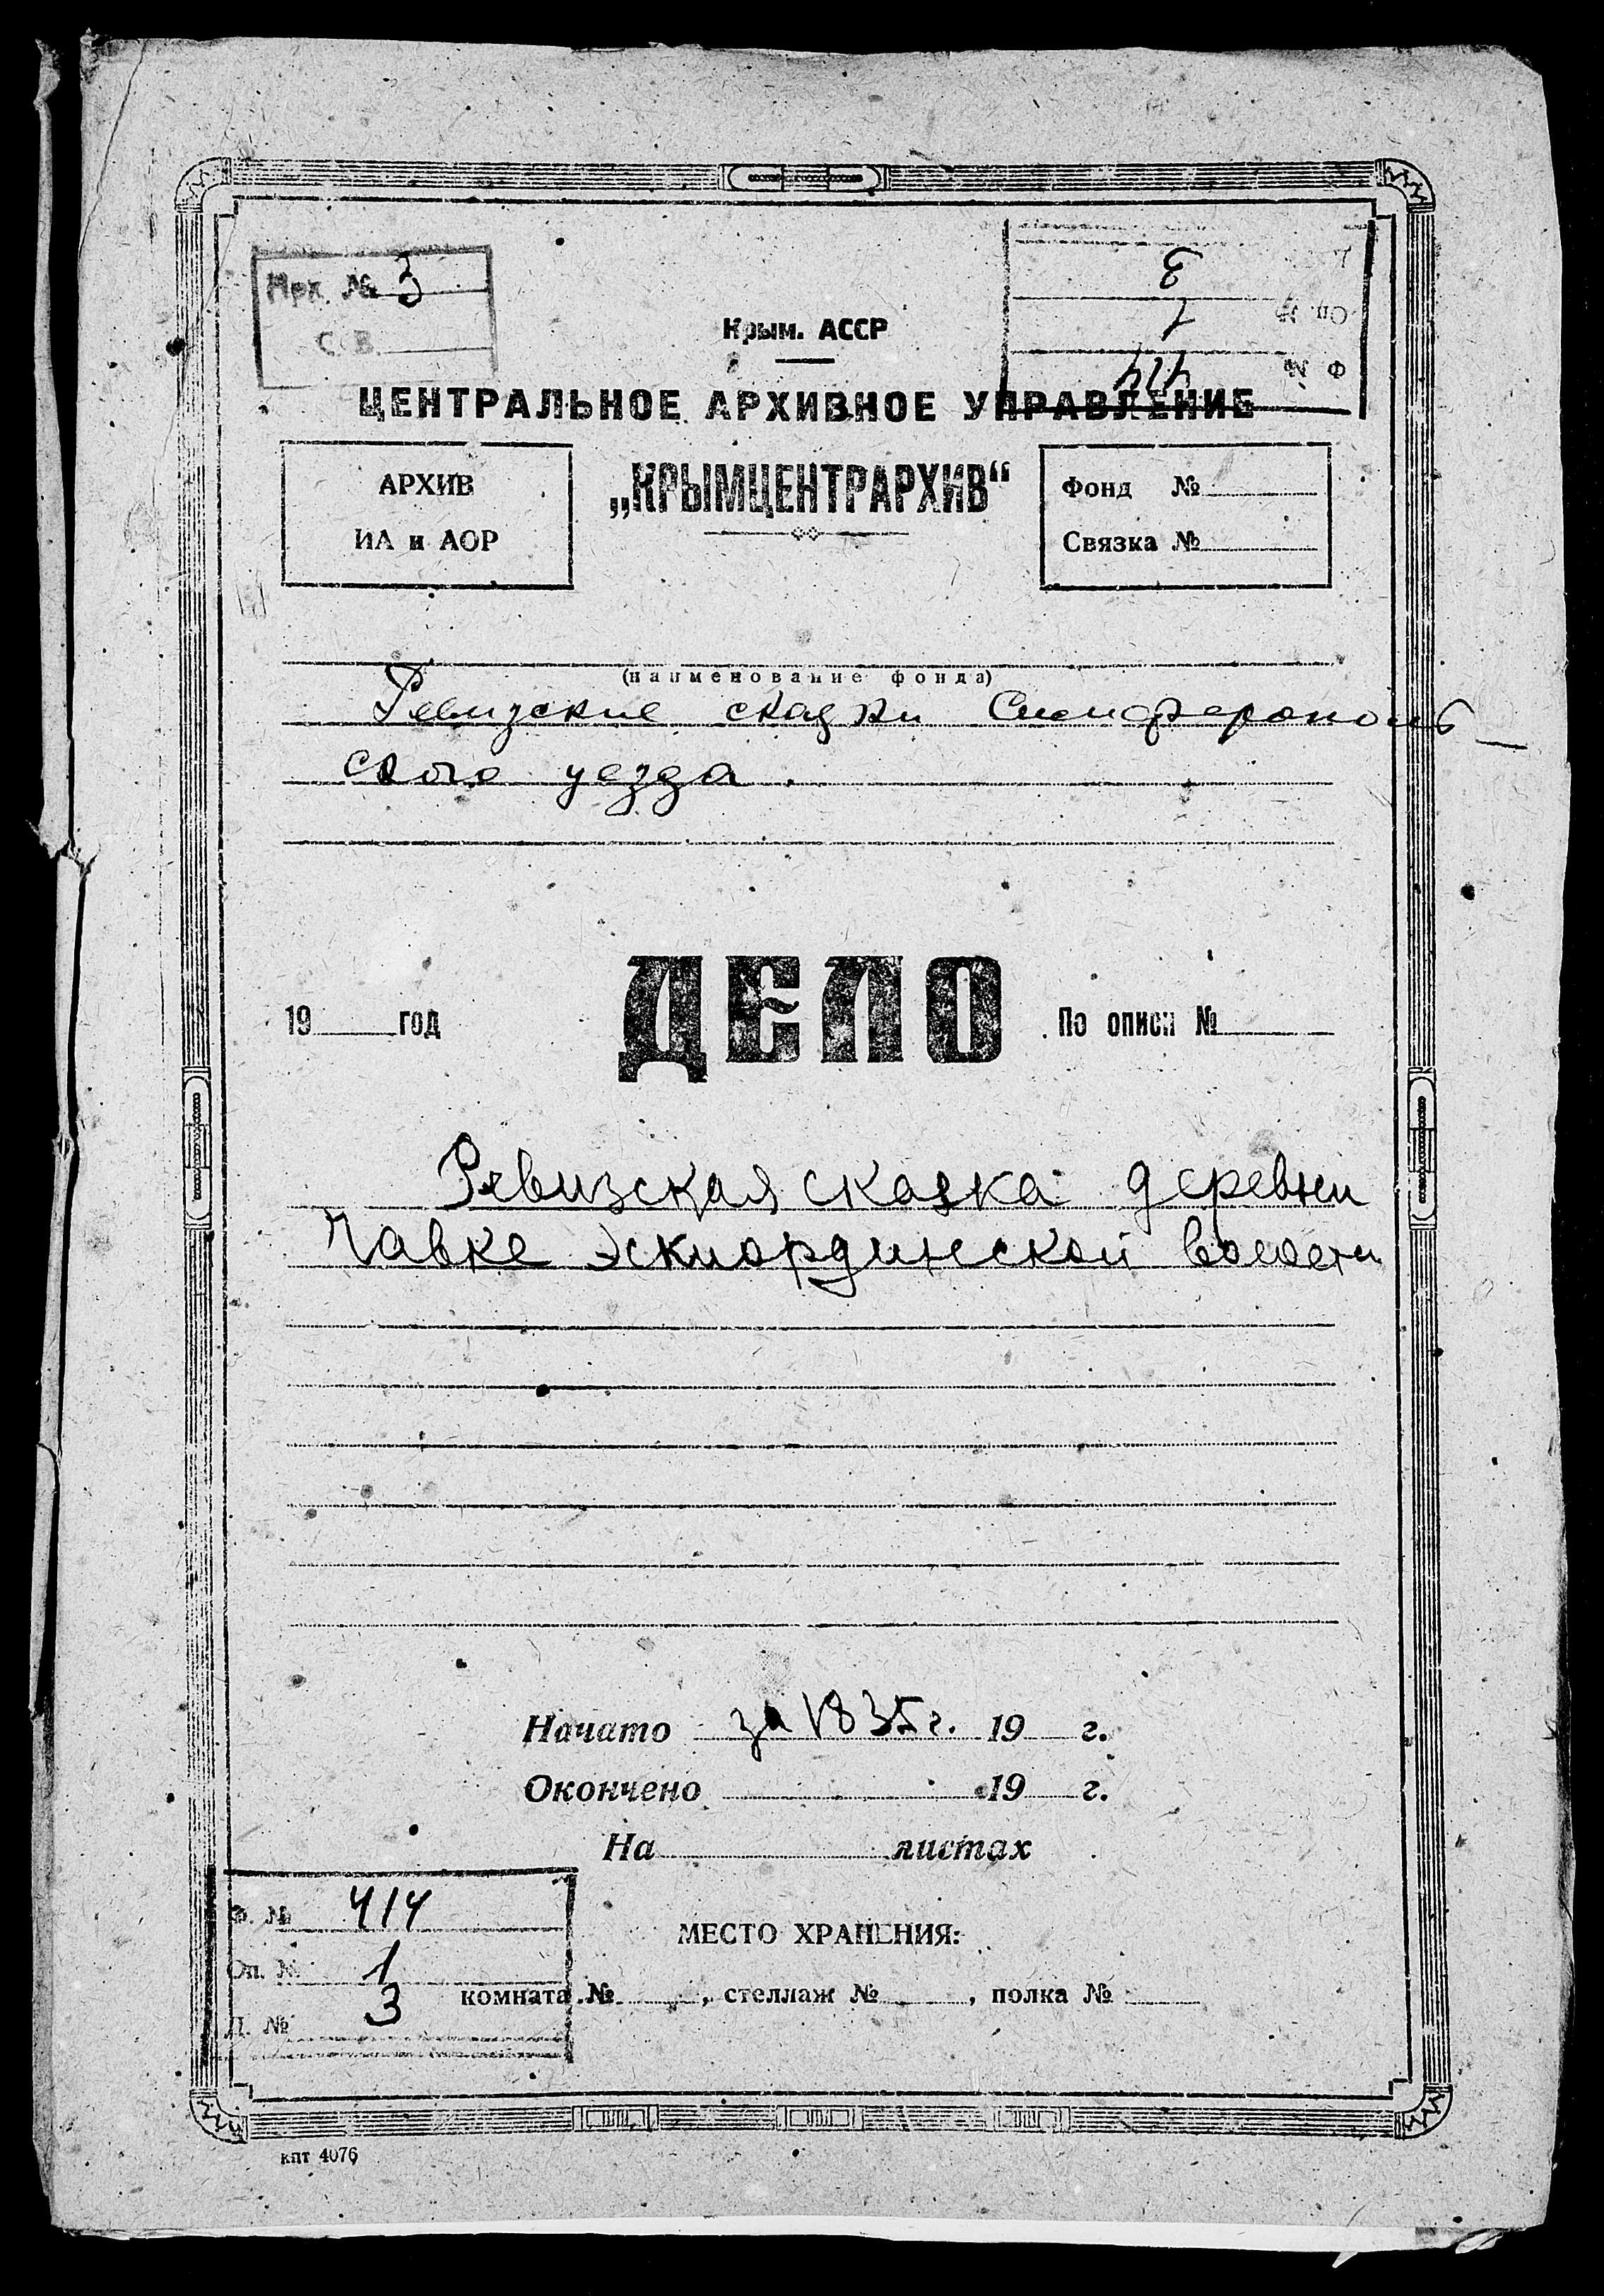 Арх. № 3
С. В.
3
Оп. № 1
Ф № 414
Крым. АССР
ЦЕНТРАЛЬНОЕ АРХИВНОЕ УПРАВЛЕНИЕ
„КРЫМЦЕНТРАРХИВ“
АРХИВ
ИА и АОР
Фонд №
Связка №
(наименование фонда)
Ревизские сказки Симферополь
ского уезда.
19 год
ДЕЛО
По описи №
Ревизская сказка деревни
Чавке Эскиординской волости
Начато за 1835 г. 19 г.
Окончено 19 г.
На листах
Ф. № 414
Оп. № 1
Д. № 3
МЕСТО ХРАНЕНИЯ:
комната №, стеллаж №, полка №
кпт 4076